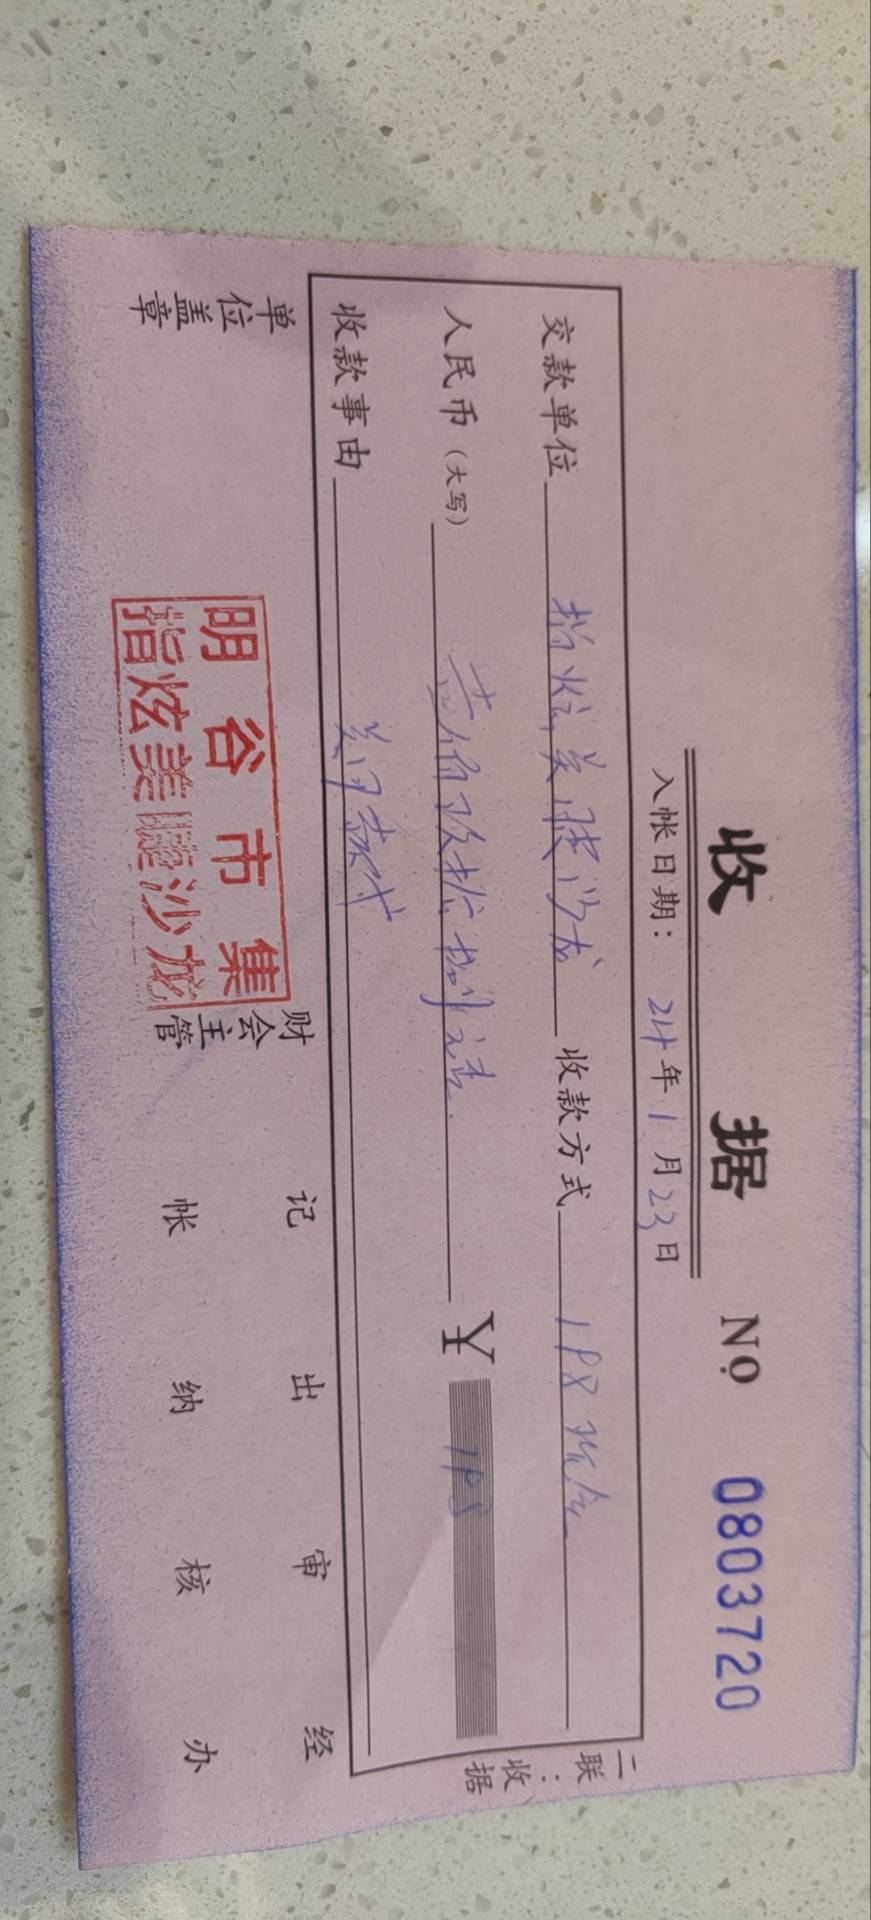 收 据 Nº 0803720
入帐日期： 24年1月23日
交款单位 指炫美睫沙龙 收款方式 198现金
人民币（大写） 壹佰玖拾捌元整 ¥ 198
收款事由 美闭款式
二联：收据
单位盖章 财会主管 记帐 出纳 审核 经办
明谷市集
指炫美睫沙龙